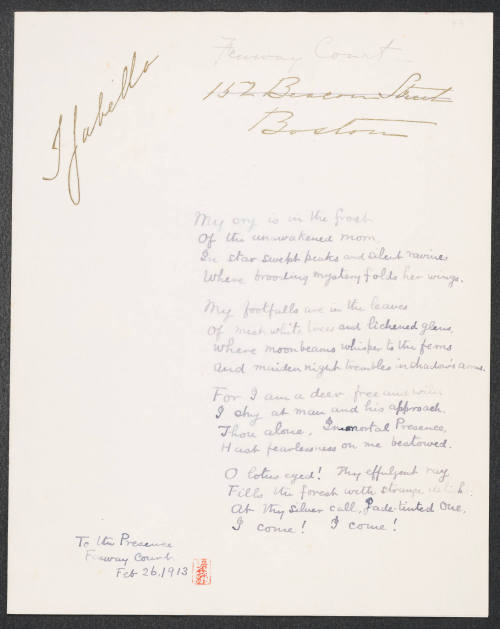 Fenway Court
152 Beacon Street
Boston
Isabella
My cry is in the frost
Of the unawakened morn,
In star swept peaks and silent ravines
Where brooding mystery folds her wings.
My footfalls are in the leaves
Of mesh white trees and lichened glens,
Where moonbeams whisper to the ferns
And maiden night trembles in shadow's arms.
For I am a deer free and wild
I shy at man and his approach.
Thou alone, Immortal Presence,
Hast fearlessness on me bestowed.
O lotus eyed! Thy effulgent ray
Fills the forest with strange
At thy silver call, Jade-tinted One,
I come! I come!
To the Presence
Fenway Court
Feb 26, 1913